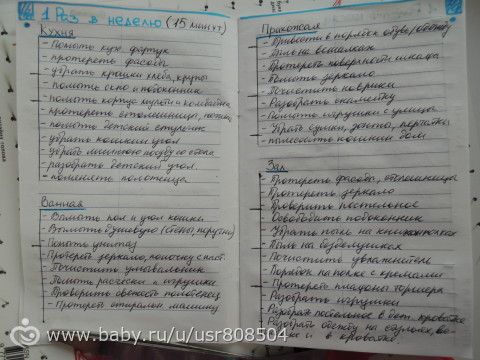 1 Раз в неделю (15 минут)
Кухня
- Помыть кух фартук
- протереть фасады
- убрать крошки хлеба, крупы
- помыть окно и подоконник
- помыть корпус мульти и комбайна
- протереть столешницы,
- помыть детский стульчик
- убрать кошкин угол
- убрать лишнюю посуду со стола
- разобрать детский угол
- поменять полотенца
Ванная
- Вымыть пол и угол кошки
- Вымыть душевую (стены,
- Помыть унитаз
- Протереть зеркало, полочку с пласт.
- Почистить умывальник
- Помыть расчески и игрушки
- Проверить свежесть полотенец
- Протереть стиральн. машину
Прихожая
- Привести в порядок обувь, одежду
- Пыль на вешалках
- Протереть поверхности шкафа
- Помыть зеркало
- Почистить коврики
- Разобрать скамейку
- Помыть игрушки с улицы
- Убрать сумки, зонты, перчатки
Зал
- Протереть фасады, столешницы
- Протереть зеркало
- Проверить постельное
- Освободить подоконник
- Убрать пыль на книж полках
- Пыль на безделушках
- Почистить увлажнитель
- Порядок на полке с кремами
- Протереть плафоны торшера
- Разобрать игрушки
- Разобрать постельное в дет. кроватке
- Разобрать одежду на стульях,
и в кроватке.
www.baby.ru/u/usr808504